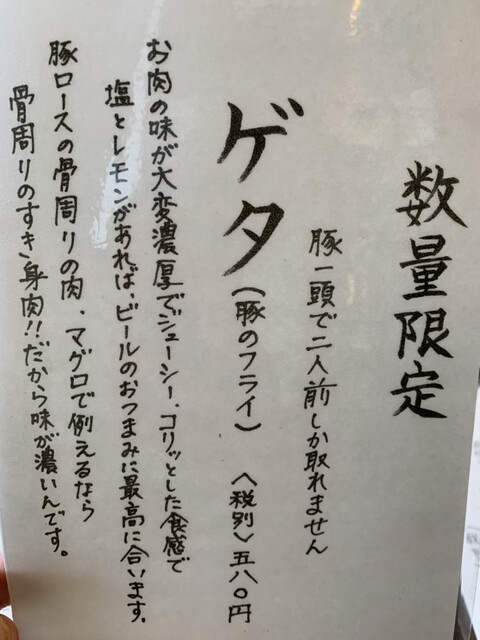 数量限定
豚一頭で二人前しか取れません
ゲタ(豚のフライ) 〈税別〉五八〇円
お肉の味が大変濃厚でジューシー、コリッとした食感で
塩とレモンがあれば、ビールのおつまみに最高に合います。
豚ロースの骨周りの肉、マグロで例えるなら
骨周りのすき身肉!!だから味が濃いんです。